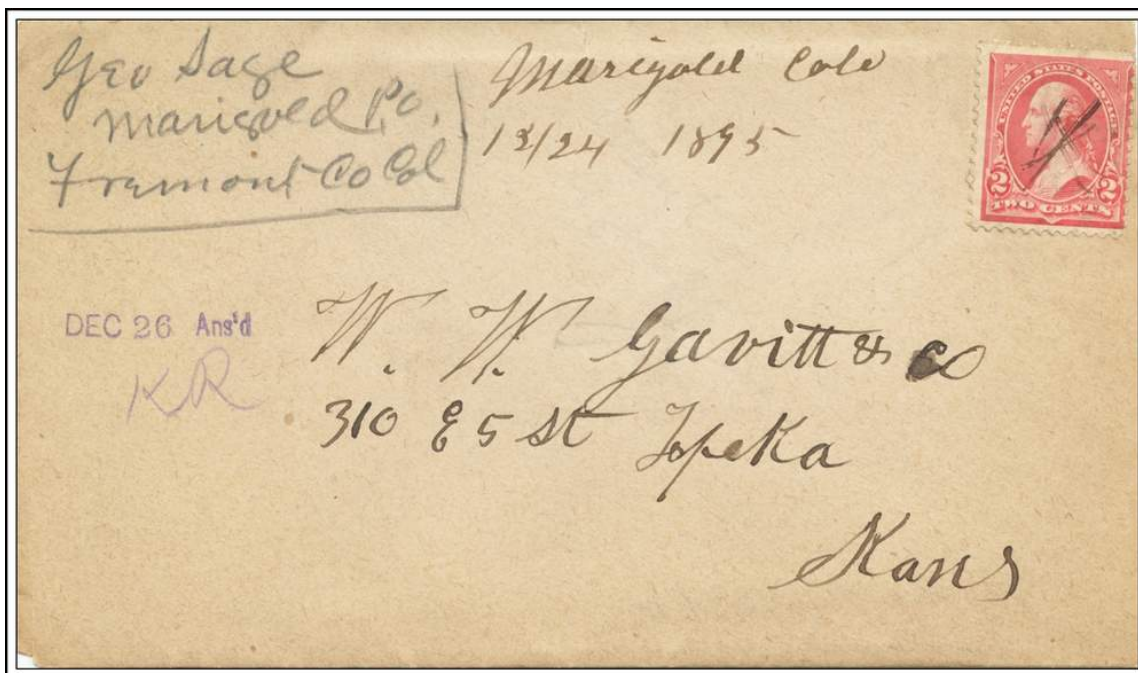 Geo Sage
Marigold P.O.
Fremont Co Col
Marigold Colo
12/24 1895
UNITED STATES POSTAGE
2 2
TWO CENTS
DEC 26 Ans'd
KR
W. W. Gavitt & Co
310 E 5 St Topeka
Kans